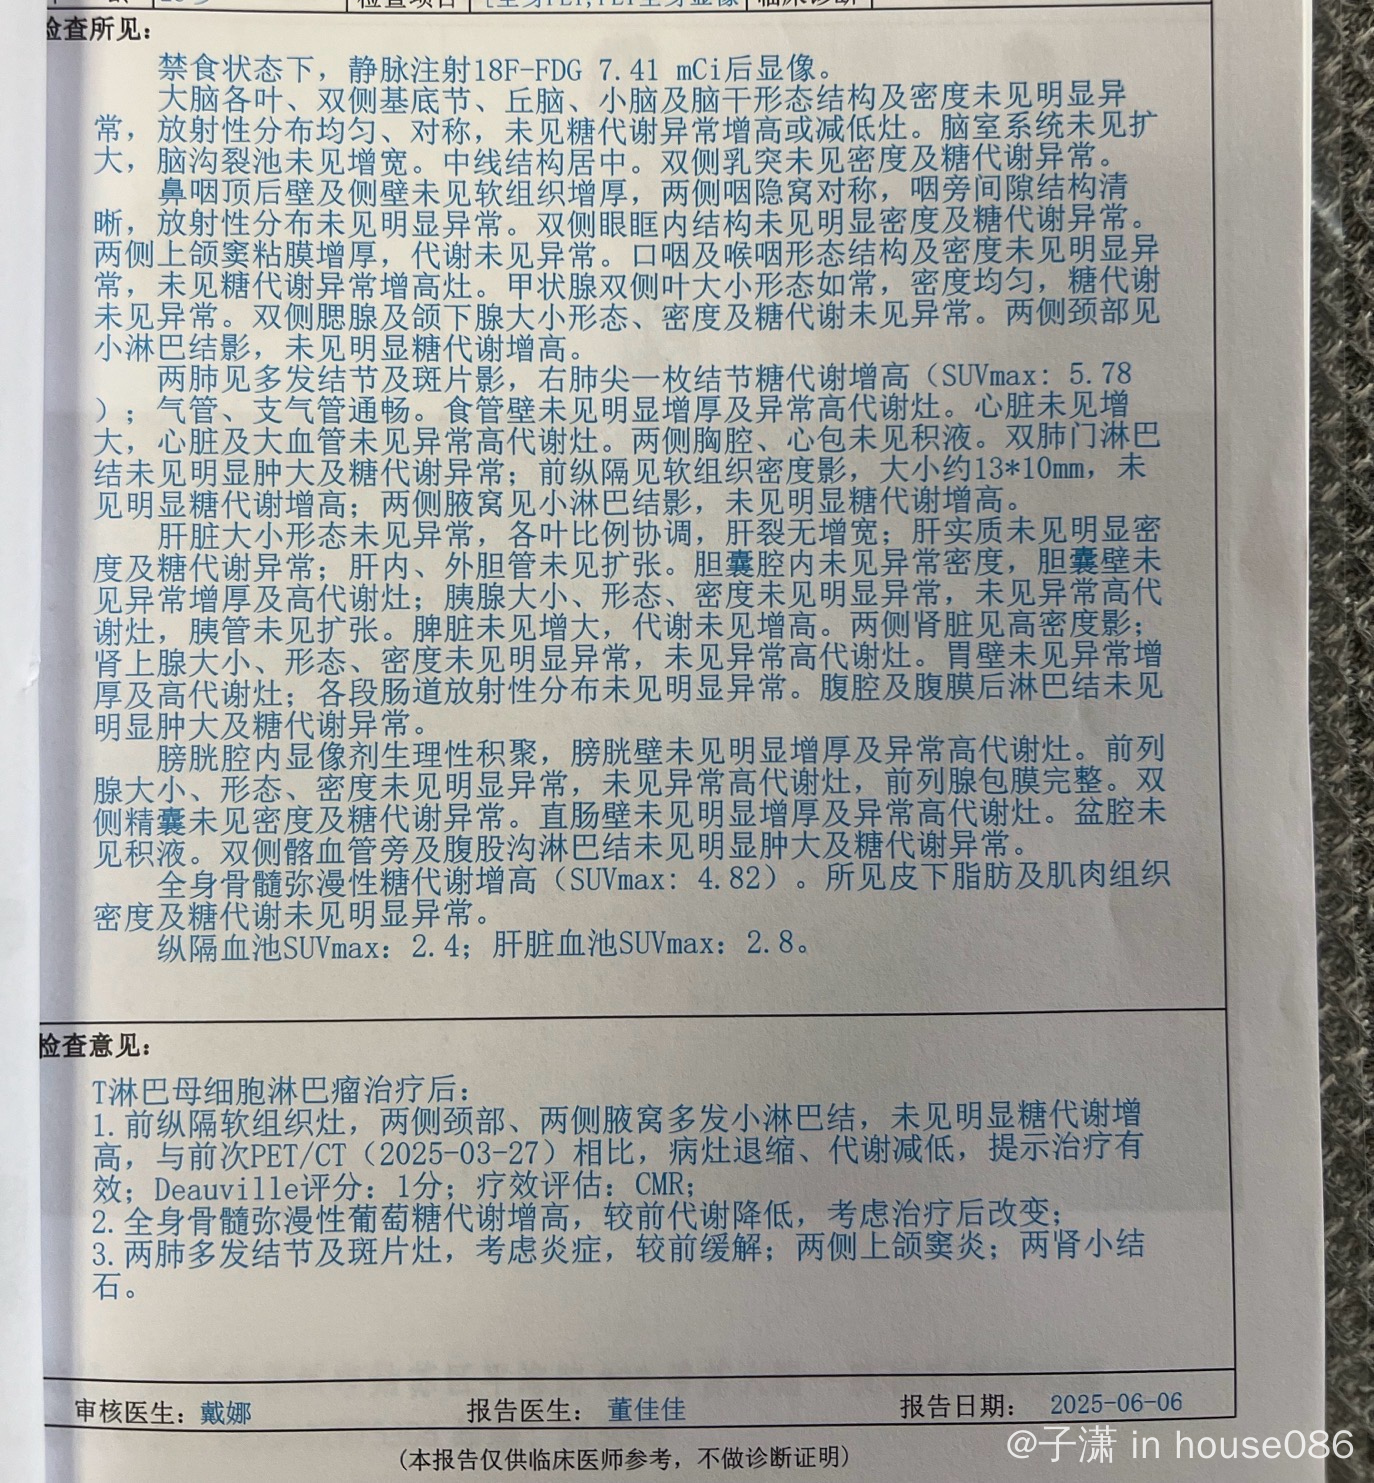 检查项目
[全身PET,PET全身显像
临床诊断
检查所见：
禁食状态下，静脉注射18F-FDG 7.41 mCi后显像。
大脑各叶、双侧基底节、丘脑、小脑及脑干形态结构及密度未见明显异
常，放射性分布均匀、对称，未见糖代谢异常增高或减低灶。脑室系统未见扩
大，脑沟裂池未见增宽。中线结构居中。双侧乳突未见密度及糖代谢异常。
鼻咽顶后壁及侧壁未见软组织增厚，两侧咽隐窝对称，咽旁间隙结构清
晰，放射性分布未见明显异常。双侧眼眶内结构未见明显密度及糖代谢异常。
两侧上颌窦粘膜增厚，代谢未见异常。口咽及喉咽形态结构及密度未见明显异
常，未见糖代谢异常增高灶。甲状腺双侧叶大小形态如常，密度均匀，糖代谢
未见异常。双侧腮腺及颌下腺大小形态、密度及糖代谢未见异常。两侧颈部见
小淋巴结影，未见明显糖代谢增高。
两肺见多发结节及斑片影，右肺尖一枚结节糖代谢增高（SUVmax: 5.78
）；气管、支气管通畅。食管壁未见明显增厚及异常高代谢灶。心脏未见增
大，心脏及大血管未见异常高代谢灶。两侧胸腔、心包未见积液。双肺门淋巴
结未见明显肿大及糖代谢异常；前纵隔见软组织密度影，大小约13*10mm，未
见明显糖代谢增高；两侧腋窝见小淋巴结影，未见明显糖代谢增高。
肝脏大小形态未见异常，各叶比例协调，肝裂无增宽；肝实质未见明显密
度及糖代谢异常；肝内、外胆管未见扩张。胆囊腔内未见异常密度，胆囊壁未
见异常增厚及高代谢灶；胰腺大小、形态、密度未见明显异常，未见异常高代
谢灶，胰管未见扩张。脾脏未见增大，代谢未见增高。两侧肾脏见高密度影；
肾上腺大小、形态、密度未见明显异常，未见异常高代谢灶。胃壁未见异常增
厚及高代谢灶；各段肠道放射性分布未见明显异常。腹腔及腹膜后淋巴结未见
明显肿大及糖代谢异常。
膀胱腔内显像剂生理性积聚，膀胱壁未见明显增厚及异常高代谢灶。前列
腺大小、形态、密度未见明显异常，未见异常高代谢灶，前列腺包膜完整。双
侧精囊未见密度及糖代谢异常。直肠壁未见明显增厚及异常高代谢灶。盆腔未
见积液。双侧髂血管旁及腹股沟淋巴结未见明显肿大及糖代谢异常。
全身骨髓弥漫性糖代谢增高（SUVmax: 4.82）。所见皮下脂肪及肌肉组织
密度及糖代谢未见明显异常。
纵隔血池SUVmax：2.4；肝脏血池SUVmax：2.8。
检查意见：
T淋巴母细胞淋巴瘤治疗后：
1.前纵隔软组织灶，两侧颈部、两侧腋窝多发小淋巴结，未见明显糖代谢增
高，与前次PET/CT（2025-03-27）相比，病灶退缩、代谢减低，提示治疗有
效；Deauville评分：1分；疗效评估：CMR；
2.全身骨髓弥漫性葡萄糖代谢增高，较前代谢降低，考虑治疗后改变；
3.两肺多发结节及斑片灶，考虑炎症，较前缓解；两侧上颌窦炎；两肾小结
石。
审核医生：戴娜 报告医生：董佳佳 报告日期：2025-06-06
(本报告仅供临床医师参考，不做诊断证明)
@子潇 in house086